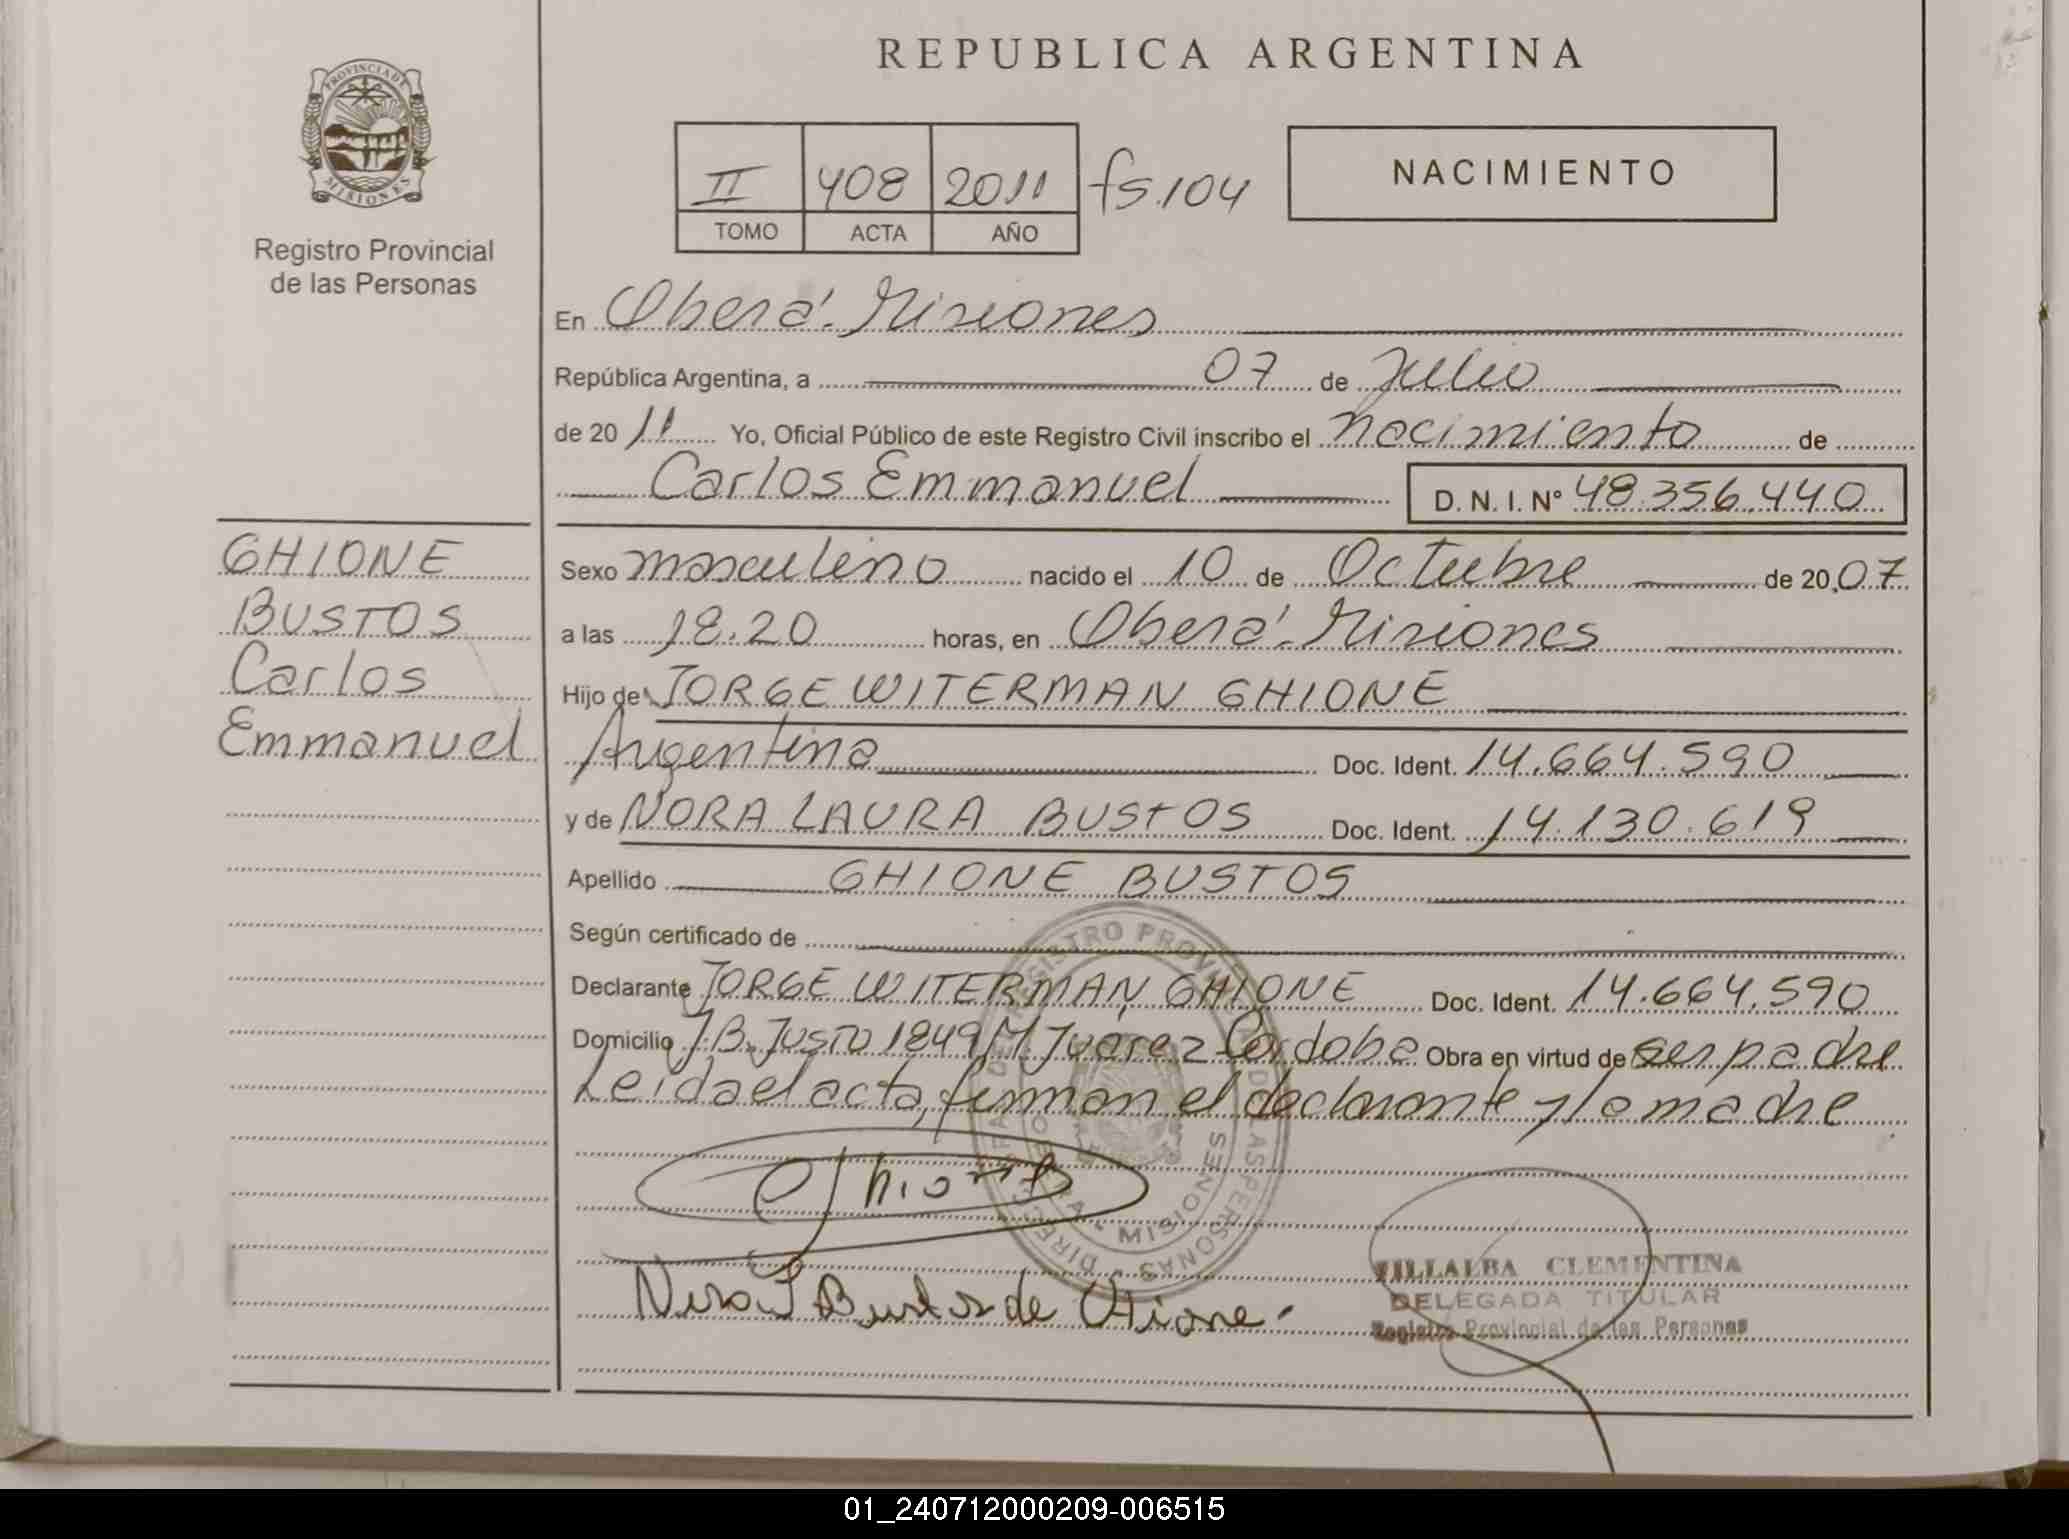 REPUBLICA ARGENTINA
PROVINCIA DE MISIONES
Registro Provincial
de las Personas
II 408 2011 fs.104
TOMO ACTA AÑO
NACIMIENTO
En Oberá. Misiones
República Argentina, a 07 de Julio
de 2011 Yo, Oficial Público de este Registro Civil inscribo el nacimiento de
Carlos Emmanuel D.N.I. Nº 48.356.440
GHIONE
BUSTOS
Carlos
Emmanuel
Sexo masculino nacido el 10 de Octubre de 20 07
a las 18.20 horas, en Oberá. Misiones
Hijo de JORGE WITERMAN GHIONE
Argentina Doc. Ident. 14.664.590
y de NORA LAURA BUSTOS Doc. Ident. 14.130.619
Apellido GHIONE BUSTOS
Según certificado de
Declarante JORGE WITERMAN GHIONE Doc. Ident. 14.664.590
Domicilio J.B. JUSTO 1849 M. Juárez Córdoba Obra en virtud de ser padre
Leida el acta, firman el declarante y la madre
Ghione
Nora L Bustos de Ghione.
VILLALBA CLEMENTINA
DELEGADA TITULAR
Registro Provincial de las Personas
01_240712000209-006515